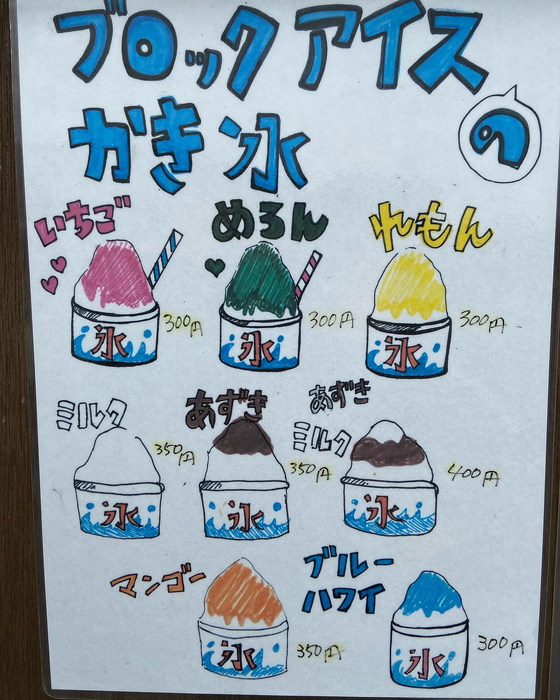 ブロックアイス
の
かき氷
いちご
めろん
れもん
氷
300円
氷
300円
氷
300円
ミルク
あずき
あずき
ミルク
350円
350円
400円
氷
氷
氷
マンゴー
ブルー
ハワイ
氷
350円
氷
300円